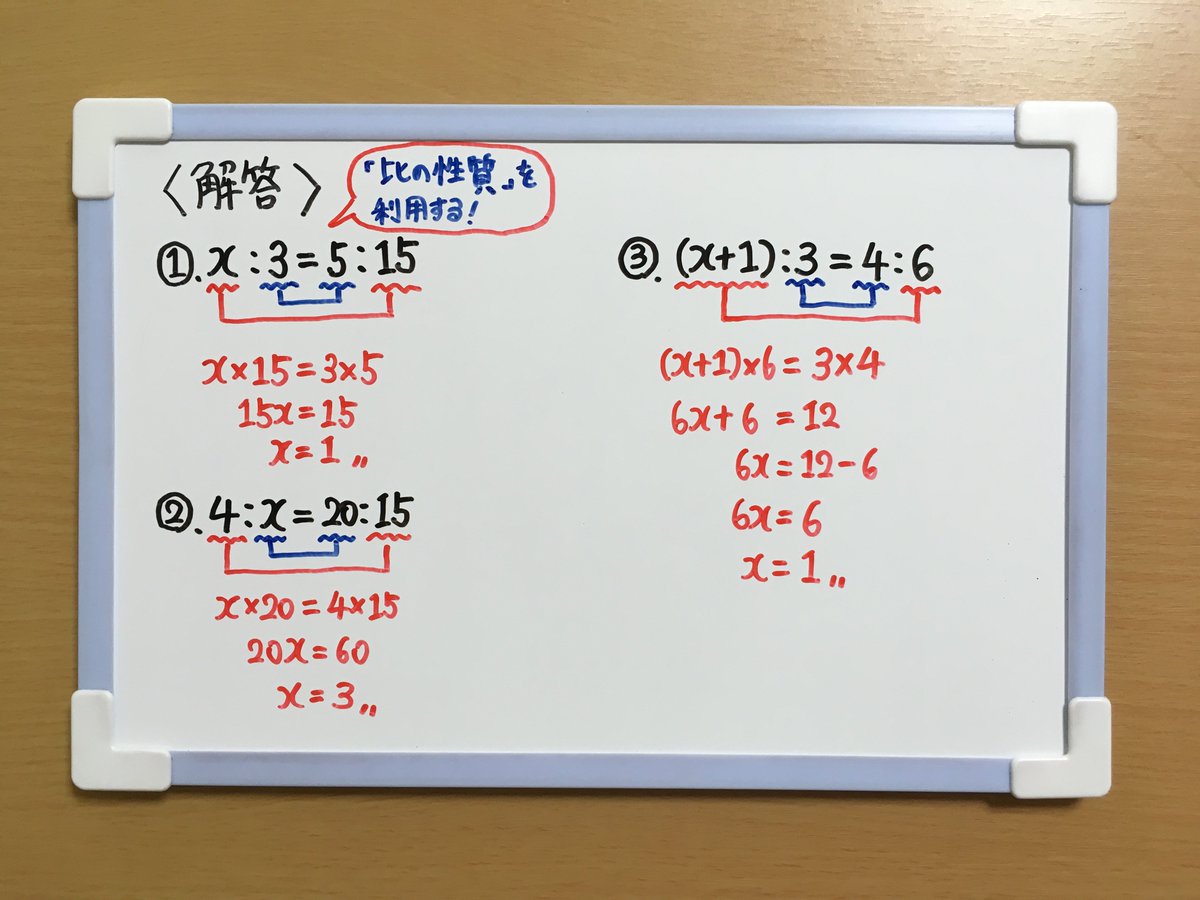 〈解答〉
「比の性質」を
利用する!
①. x:3=5:15
x×15=3×5
15x=15
x=1〃
②. 4:x=20:15
x×20=4×15
20x=60
x=3〃
③. (x+1):3=4:6
(x+1)×6=3×4
6x+6=12
6x=12-6
6x=6
x=1〃